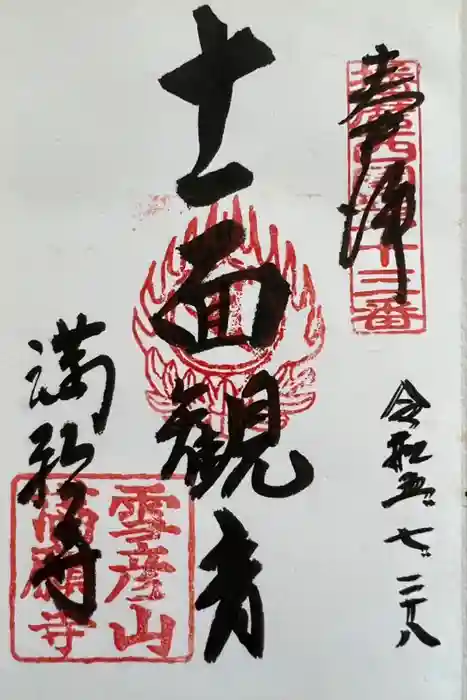 奉拝
播磨西国第十三番
令和五.七.二十八
十一面観音
満願寺
雪彦山
満願寺